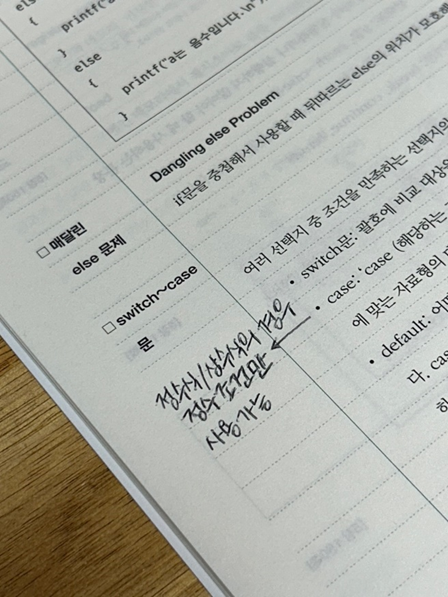 els
printf("a
}
else
{
printf("a는 음수입니다.\n"
}
}
Dangling else Problem
if문을 중첩해서 사용할 때 뒤따르는 else의 위치가 모호해
□ 매달린
else 문제
여러 선택지 중 조건을 만족하는 선택지의
□ switch~case
문
• switch문: 괄호에 비교 대상
• case: 'case (해당하는
에 맞는 자료형의
• default: 이
다. cas
하
정수식/상수식의 경우
정수 조건만
사용가능